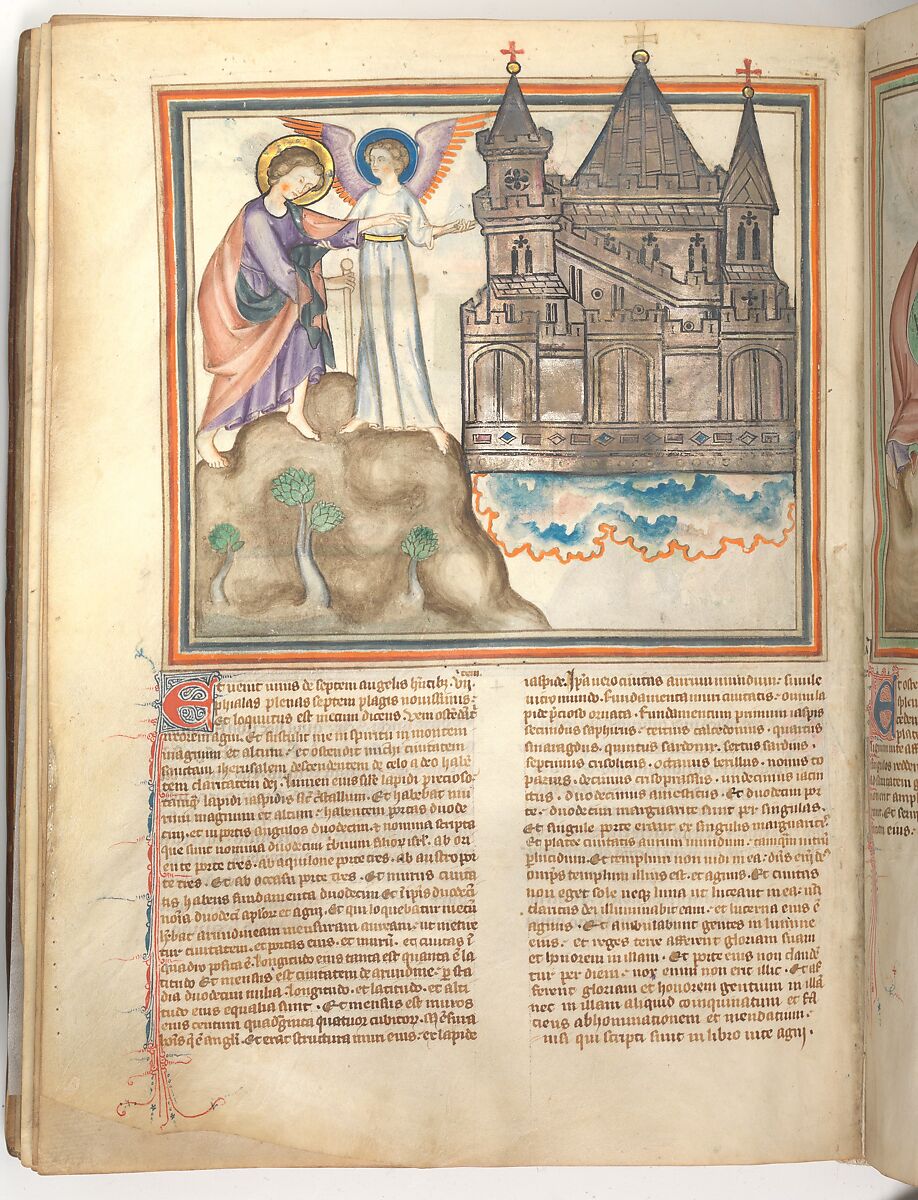 Et venit unus de septem angelis hñtib; vii
phialas plenas septem plagis novissimis.
Et locutus est mecum dicens. Veni ostendā t
uxorem agni. Et sustulit me in spiritu in montem
magnum et altum. et ostendit michi civitatem
sanctam iherusalem descendentem de celo a deo habē
tem claritatem dei. Lumen eius sīle lapidi precioso.
tamq̄ lapidi iaspidis sic̄ c̄stallum. Et habebat mu
rum magnum et altum. habentem portas duode
cim. et in portis angelos duodecim. et nomina scripta
que sunt nomina duodecim tribuum filior isrl. ab ori
ente porte tres. ab aquilone porte tres. ab austro por
te tres. Et ab occasu porte tres. Et murus civita
tis habens fundamenta duodecim. Et ī ipīs duodecī
noīa duodecī apłor et agni. Et qui loquebatur mecū
hēbat arundineam mensuram auream. ut metire
tur civitatem. et portas eius. et murū. et civitas ī
quadro posita ē. longitudo eius tanta est quanta ē la
titudo. Et mensus est civitatem de arundine. p sta
dia duodecim milia. longitudo. et latitudo. et alti
tudo eius equalia sunt. Et mensus est muros
eius centum quadginta quatuor cubitor. Mēsura
hoīs q̄ ē angłi. Et erat structura muri eius. ex lapide
iaspide. Ipā vero civitas aurum mundum. simile
vitro mundo. Fundamenta muri civitatis. omni la
pide p̄cioso ornata. fundamentum primum iaspis
secundus saphirus. tertius calcedonius. quartus
smaragdus. quintus sardonix. sextus sardius.
septimus crisolitus. octavus berillus. nonus to
pasius. decimus crisoprassus. undecimus iacin
ctus. duodecimus amestitus. Et duodecim por
te. duodecim margarite sunt per singulas.
Et singule porte erant ex singulis margaritis.
Et platee civitatis aurum mundum. tamq̄m vitrū
p̄lucidum. Et templum non vidi in ea. dn̄s enī ds̄
omīps templum illius est. et agnus. Et civitas
non eget sole neq; luna ut luceant in ea. nā
claritas dei illuminabit eam. et lucerna eius ē
agnus. Et ambulabunt gentes in lumine
eius. et reges terre afferent gloriam suam
et honorem in illam. Et porte eius non claudē
tur per diem. nox enim non erit illic. Et af
ferent gloriam et honorem gentium in illā
nec in illam aliquid coinquinatum et fa
ciens abhominationem et mendatium.
nisi qui scripti sunt in libro vite agni.